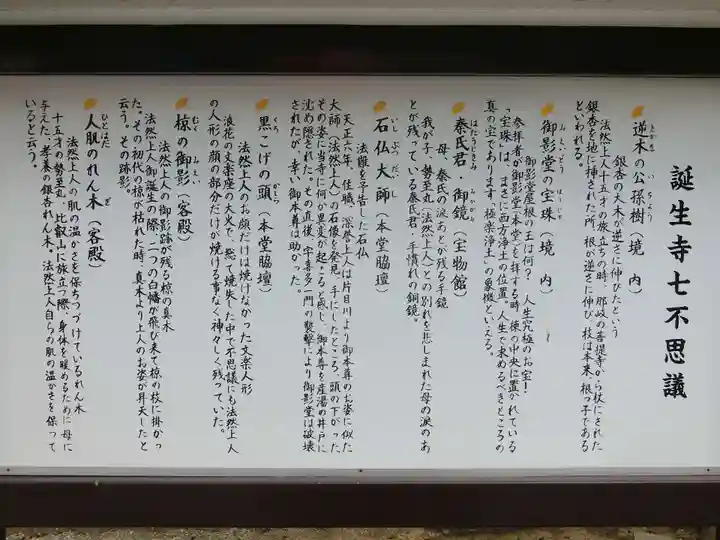 誕生寺七不思議
逆木の公孫樹（境　内）
さかき　いちょう
銀杏の大木が逆さに伸びたという
法然上人十五才の旅立ちの時、那岐の菩提寺から杖にされた
銀杏を地に挿された所、根が逆さに伸び、枝は本来、根っ子である
といわれる。
御影堂の宝珠（境　内）
みえいどう　ほうじゅ
御影堂屋根の玉は何？　人生究極のお宝！
参拝者が御影堂（本堂）を拝する時、棟の中央に置かれている
「宝珠」は、まさに西方浄土の位置。人生で求めるべきところの
真の宝であります。極楽浄土の象徴といえる。
秦氏君・御鏡（宝物館）
はたうじぎみ　みかがみ
母、秦氏の涙あとが残る手鏡
我が子、勢至丸（法然上人）との別れを悲しまれた母の涙のあ
とが残っている秦氏君、手慣れの銅鏡。
石仏大師（本堂脇壇）
いしぶつだいし
法難を予告した石仏
天正六年、住職、深誉上人は片目川より御本尊のお姿に似た
大師（法然上人）の石像を発見、手にしたところ、頭の下がった
その姿に当寺に何か異変が起こると感じ、御本尊を産湯の井戸に
沈め隠された。その直後、宇喜多一門の襲撃により御影堂は破壊
されたが、幸い御本尊は助かった。
黒こげの頭（本堂脇壇）
くろ　かしら
法然上人のお顔だけは焼けなかった文楽人形
浪花の文楽座の大火で、悉て焼失した中で不思議にも法然上人
の人形の顔の部分だけが焼ける事なく神々しく残っていた。
椋の御影（客殿）
むく　みえい
法然上人の御影跡が残る椋の真木
法然上人御誕生の際、二つの白幡が飛び来て椋の枝に掛かっ
た。その初代の椋が枯れた時、真木より上人のお姿が昇天したと
云う。その跡影。
人肌のれん木（客殿）
ひとはだ　ぎ
法然上人の肌の温かさを保ちつづけているれん木
十五才の勢至丸、比叡山に旅立つ際、身体を暖めるために母に
与えた、孝養の銀杏れん木。法然上人自らの肌の温かさを保って
いると云う。